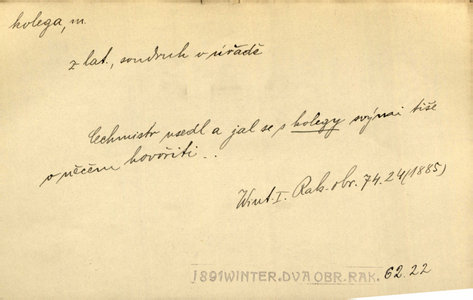 kolega, m.
z lat., soudruh v úřadě
Cechmistr usedl a jal se s kolegy svými tiše
o něčem hovořiti ..
Wint. I. Rak. obr. 74.24 (1885)
1891WINTER.DVA OBR.RAK. 62.22